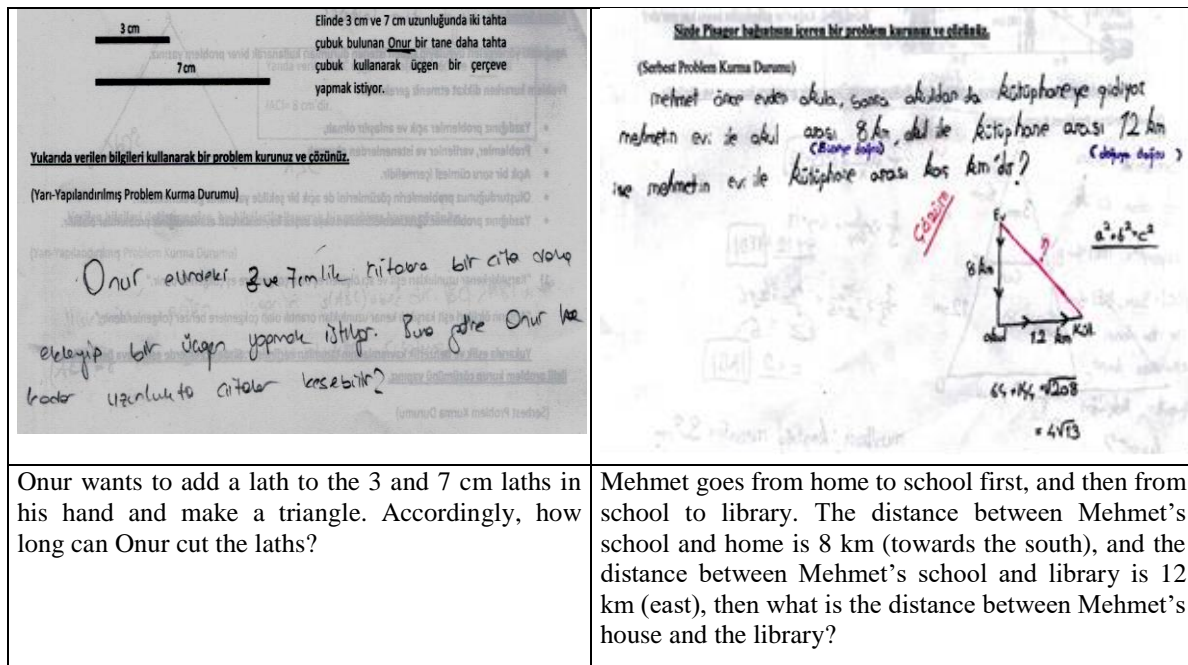 3 cm
7 cm
Elinde 3 cm ve 7 cm uzunluğunda iki tahta
çubuk bulunan Onur bir tane daha tahta
çubuk kullanarak üçgen bir çerçeve
yapmak istiyor.
Yukarıda verilen bilgileri kullanarak bir problem kurunuz ve çözünüz.
(Yarı-Yapılandırılmış Problem Kurma Durumu)
Onur elindeki 3 ve 7 cm lik bir çıta daha
ekleyip bir üçgen yapmak istiyor. Buna göre Onur
kadar uzunlukta çıtalar kesebilir?
Sizde Pisagor bağıntısını içeren bir problem kurunuz ve çözünüz.
(Serbest Problem Kurma Durumu)
mehmet önce evden okula, sonra okuldan da kütüphaneye gidiyor
mehmetin evi ile okul arası 8 km, okul ile kütüphane arası 12 km
(doğuya doğru)
ise mehmetin evi ile kütüphane arası kaç km'dir?
Çözüm
Ev
?
a²+b²=c²
8 km
okul 12 km Küt.
√208
= 4√13
Onur wants to add a lath to the 3 and 7 cm laths in
his hand and make a triangle. Accordingly, how
long can Onur cut the laths?
Mehmet goes from home to school first, and then from
school to library. The distance between Mehmet's
school and home is 8 km (towards the south), and the
distance between Mehmet's school and library is 12
km (east), then what is the distance between Mehmet's
house and the library?